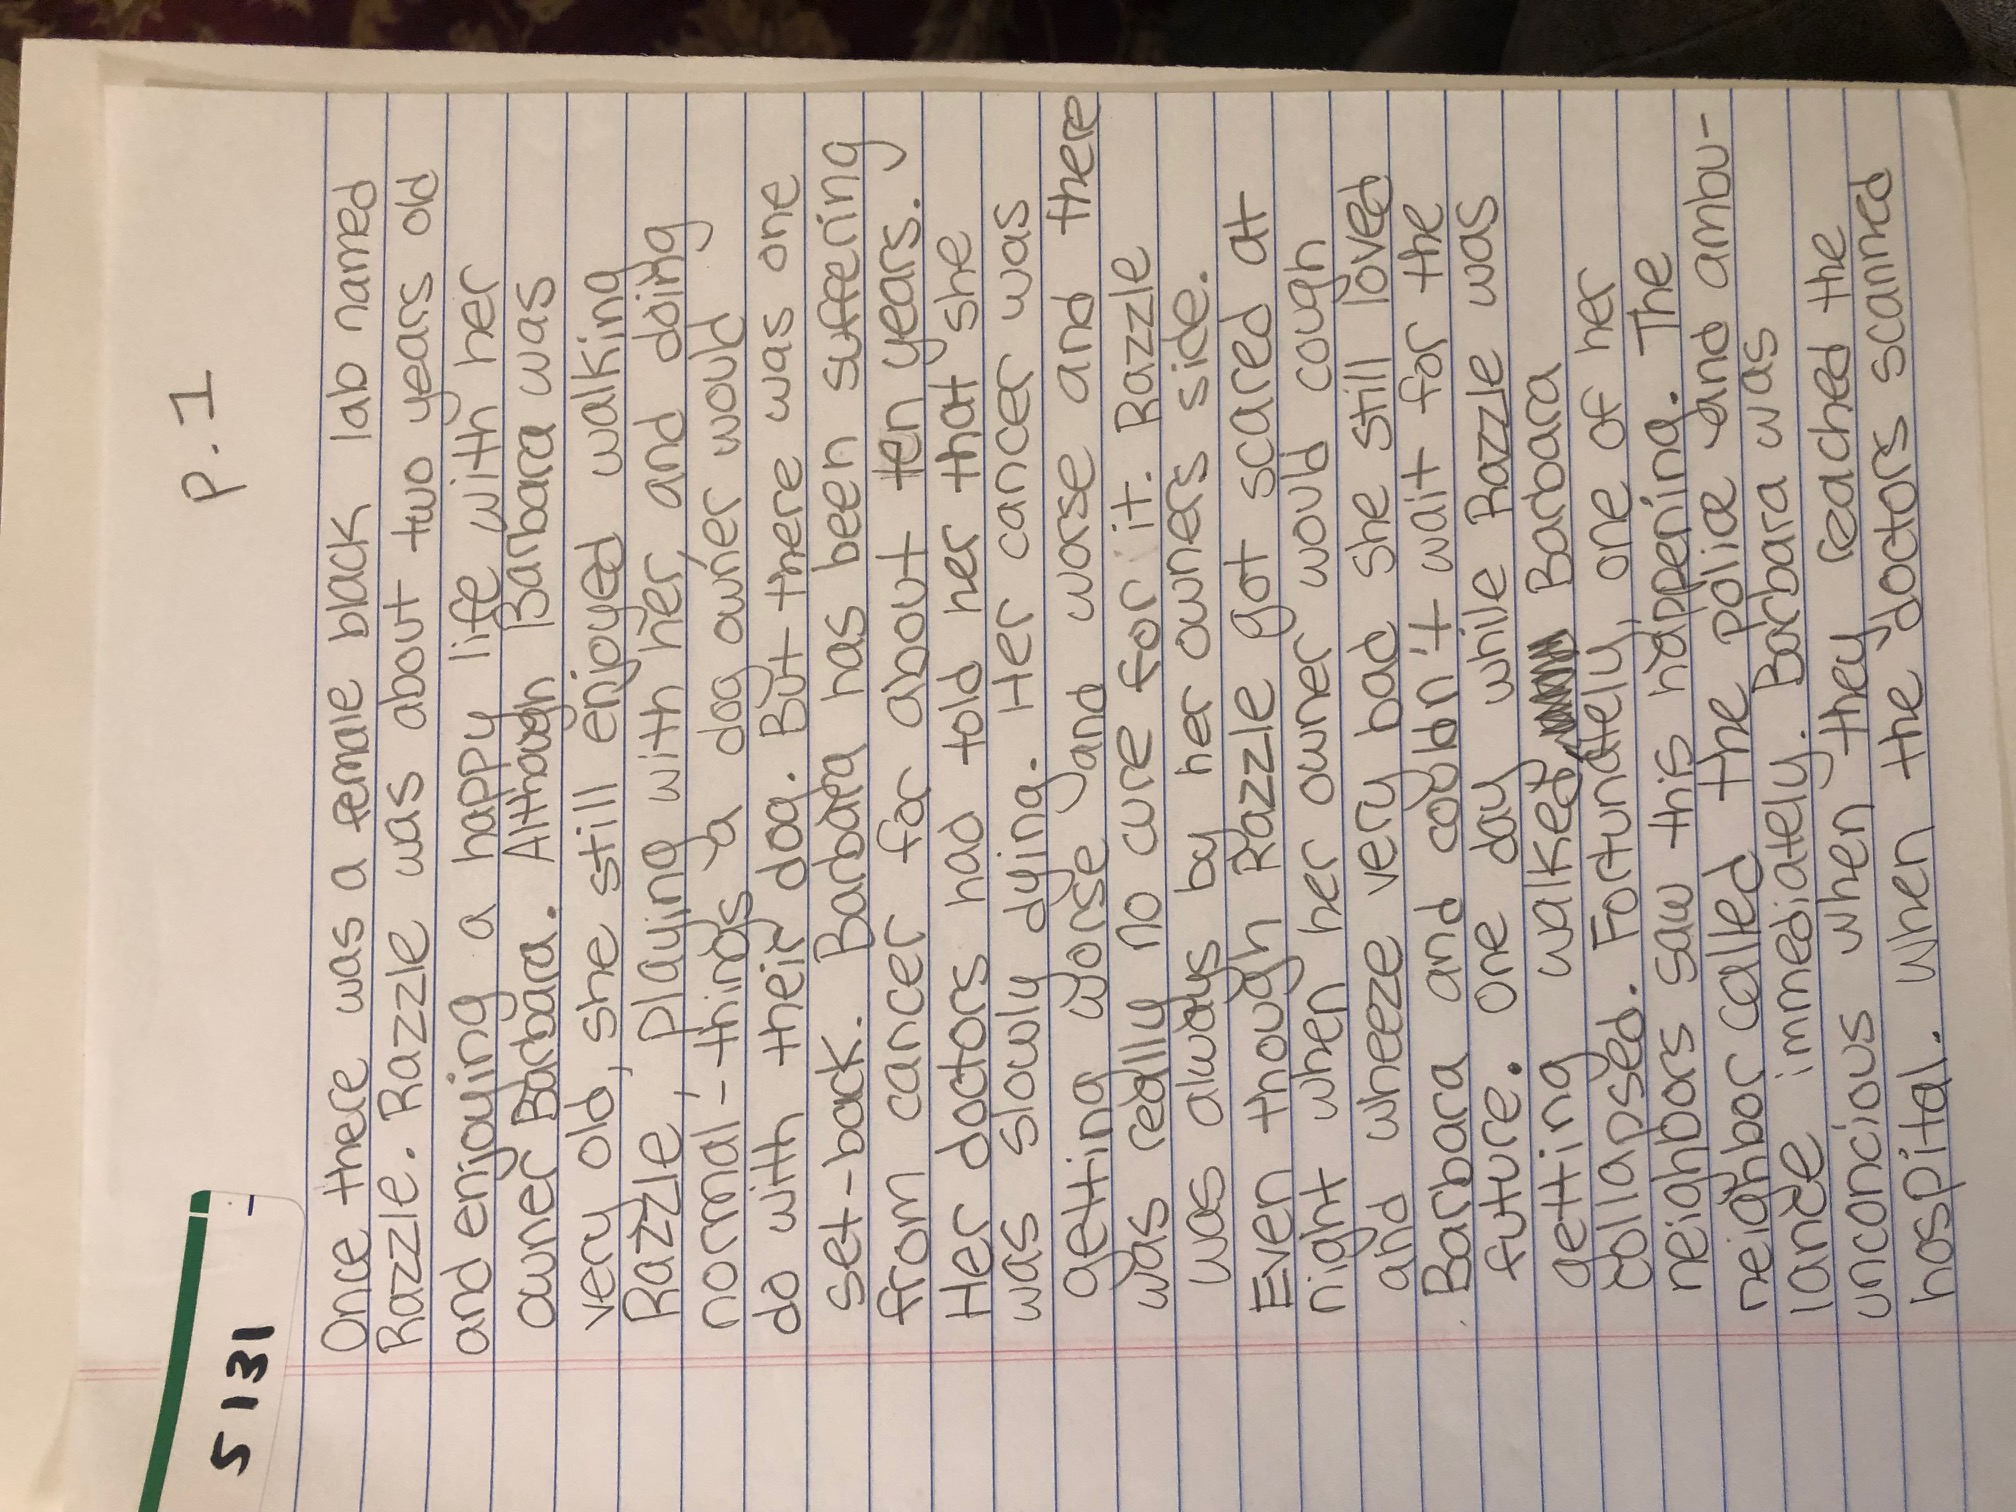 p.1
5131
Once there was a female black lab named
Razzle. Razzle was about two years old
and enjoying a happy life with her
owner Barbara. Although Barbara was
very old, she still enjoyed walking
Razzle, playing with her, and doing
normal-things a dog owner would
do with their dog. But there was one
set-back. Barbara has been suffering
from cancer for about ten years.
Her doctors had told her that she
was slowly dying. Her cancer was
getting worse and worse and there
was really no cure for it. Razzle
was always by her owners side.
Even though Razzle got scared at
night when her owner would cough
and wheeze very bad she still loved
Barbara and couldn't wait for the
future. One day while Razzle was
getting walked, Barbara
collapsed. Fortunately, one of her
neighbors saw this happening. The
neighbor called the police and ambu-
lance immediately. Barbara was
unconcious when they reached the
hospital. When the doctors scanned